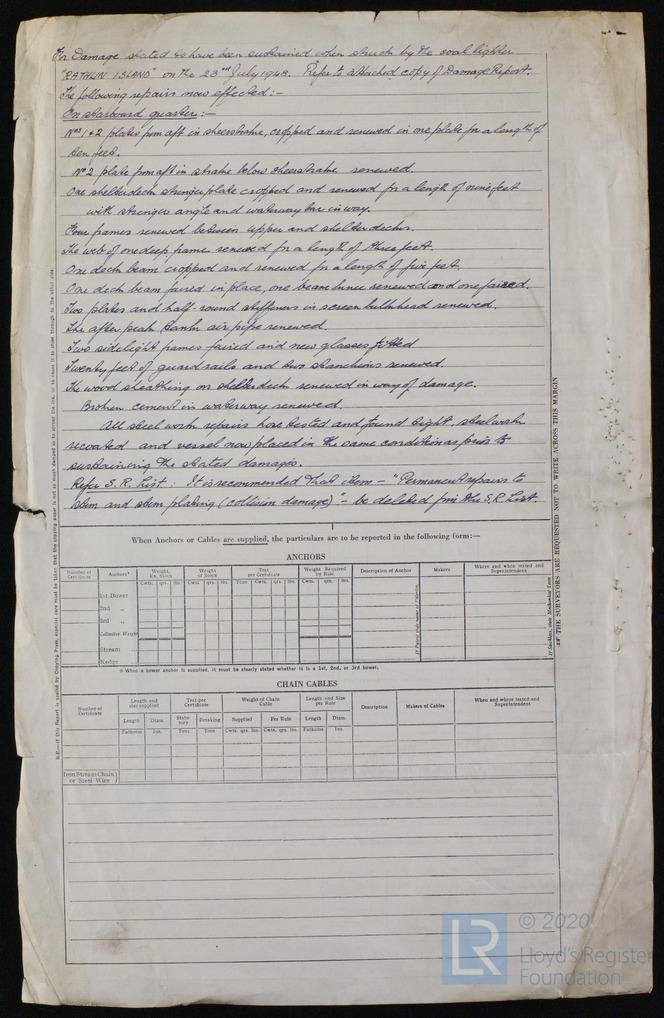 For Damage stated to have been sustained when struck by the coal lighter
"RATHLIN ISLAND" on the 23rd July 1948. Refer to attached copy of Damage Report.
The following repairs now effected:—
On starboard quarter:—
Nos 1 & 2 plates from aft in sheerstrake, cropped and renewed in one plate for a length of
ten feet.
No 2 plate from aft in strake below sheerstrake renewed.
One shelterdeck stringer plate cropped and renewed for a length of nine feet
with stringer angle and waterway bar in way.
Four frames renewed between upper and shelterdecks.
The web of one deep frame renewed for a length of three feet.
One deck beam cropped and renewed for a length of five feet.
One deck beam faired in place, one beam knee renewed and one faired.
Two plates and half-round stiffeners in screen bulkhead renewed.
The after peak tank air pipe renewed.
Two sidelight frames faired and new glasses fitted
Twenty feet of guard rails and two stanchions renewed.
The wood sheathing on shelterdeck renewed in way of damage.
Broken cement in waterway renewed.
All steel work repairs hose tested and found tight, steelwork
recoated and vessel now placed in the same condition as prior to
sustaining the stated damages.
Refer S.R. List: It is recommended that item — "Permanent repairs to
stem and stem plating (collision damage)" — be deleted from the S.R. List.
When Anchors or Cables are supplied, the particulars are to be reported in the following form:—
ANCHORS
Number of Certificate
Anchors*
Weight, Ex. Stock
Weight of Stock
Test per Certificate
Weight Required by Rule
Description of Anchor
Makers
When and where tested and Superintendent
Cwts. qrs. lbs. Cwts. qrs. lbs. Tons Cwts. qrs. lbs. Cwts. qrs. lbs.
1st Bower
2nd „
3rd „
Collective Weight
Stream
Kedge
* When a bower anchor is supplied, it must be clearly stated whether it is a 1st, 2nd, or 3rd bower.
CHAIN CABLES
Number of Certificate
Length and size supplied
Test per Certificate
Weight of Chain Cable
Length and Size per Rule
Description
Makers of Cables
When and where tested and Superintendent
Length Diam. Statutory Breaking Supplied Per Rule Length Diam.
Fathoms Ins. Tons Tons Cwts. qrs. lbs. Cwts. qrs. lbs. Fathoms Ins.
Iron Stream Chain or Steel Wire
THE SURVEYORS ARE REQUESTED NOT TO WRITE ACROSS THIS MARGIN
LR
© 2020
Lloyd's Register
Foundation